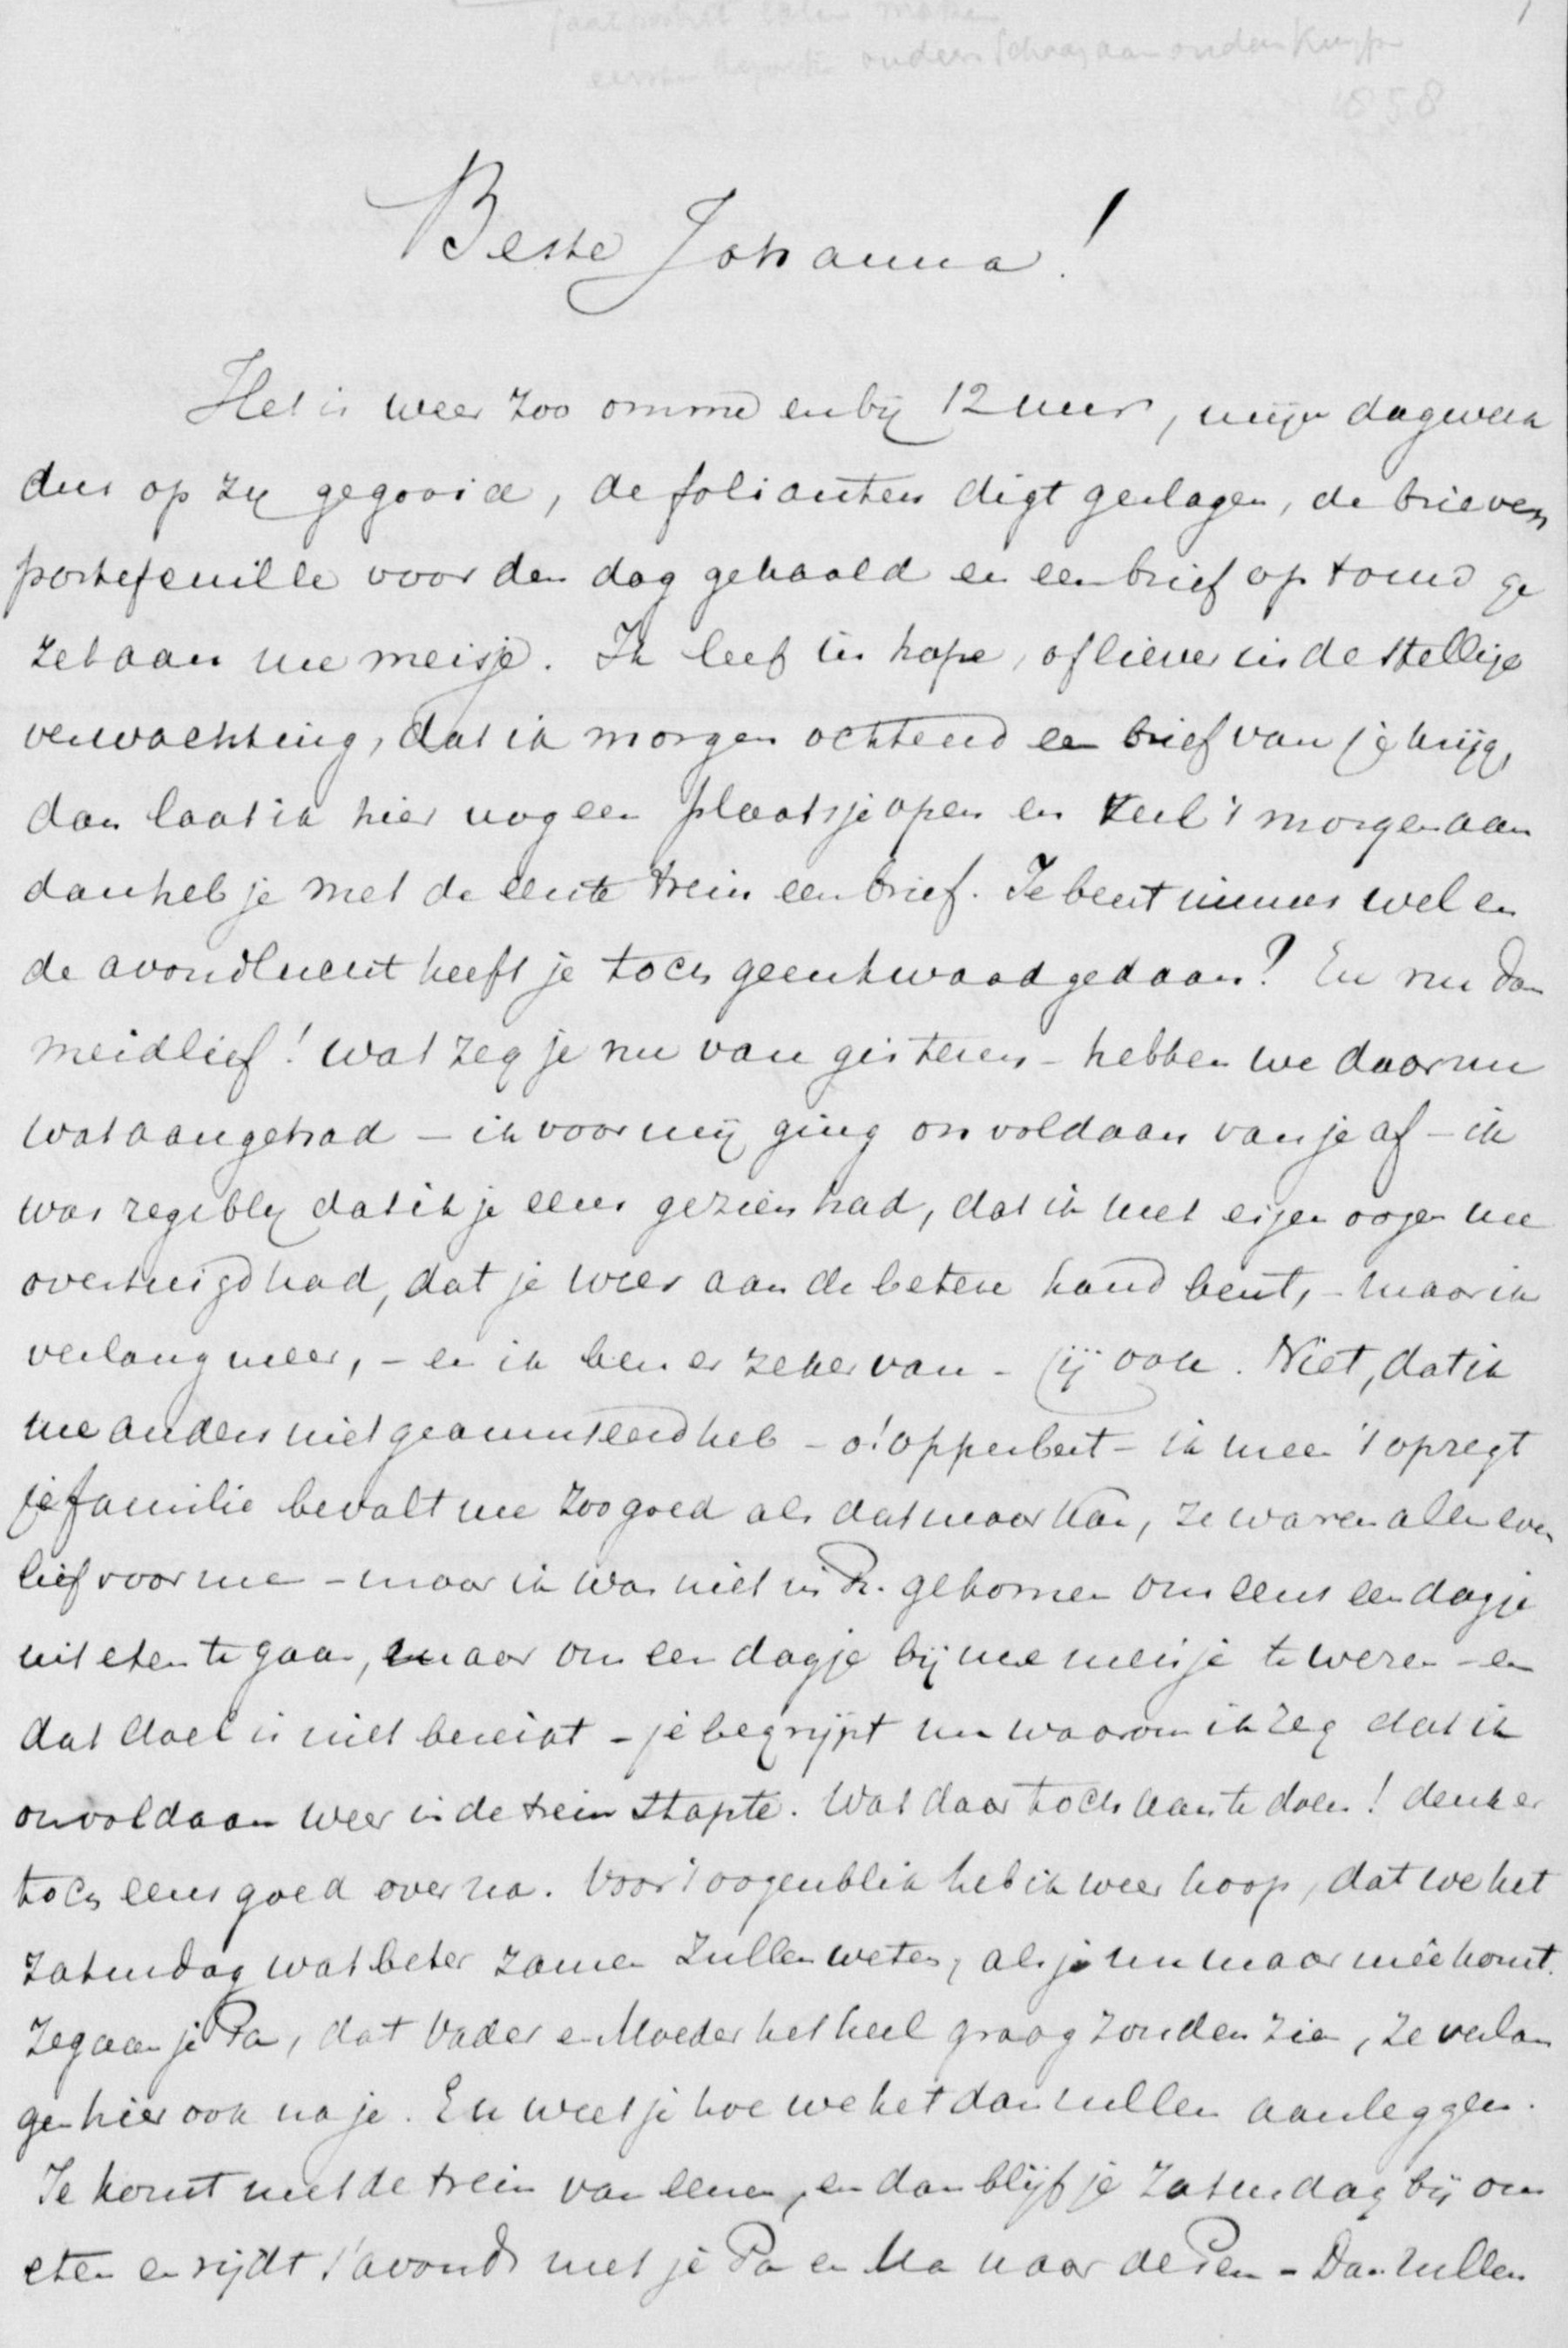 1
ouders Schaay aan ouders Kuyper
1858
Beste Johanna!
Het is weer zoo omme en bij 12 uur, mijn dagwerk
dus op zij gegooid, de folianten digt geslagen, de brieven
portefeuille voor den dag gehaald en een brief op touw ge
zet aan me meisje. Ik leef in hope, of liever in de stellige
verwachting, dat ik morgen ochtend een brief van je krijg,
dan laat ik hier nog een plaatsje open en vul 't morgen aan
dan heb je met de eerste trein een brief. Je bent immers wel en
de avondlucht heeft je toch geen kwaad gedaan? En nu dan
meidlief! wat zeg je nu van gisteren - hebben we daar nu
wat aan gehad - ik voor mij ging onvoldaan van je af - ik
was regt blij dat ik je eens gezien had, dat ik met eigen oogen me
overtuigd had, dat je weer aan de betere hand bent, - maar ik
verlang meer, - en ik ben er zeker van - jij ook. Niet, dat ik
me anders niet geamuseerd heb - o! opperbest - ik meen 't opregt
je familie bevalt me zoo goed als dat maar kan, ze waren allen even
lief voor me - maar ik was niet in R. gekomen om eens een dagje
uit eten te gaan, maar om een dagje bij me meisje te wezen - en
dat doel is niet bereikt - je begrijpt nu waarom ik zeg dat ik
onvoldaan weer in de trein stapte. Wat daar toch aan te doen! denk er
toch eens goed over na. Voor 't oogenblik heb ik weer hoop, dat we het
Zaturdag wat beter zamen zullen weten, als je nu maar meê komt.
Zeg aan je Pa, dat Vader en Moeder het heel graag zouden zien, ze verlan
gen hier ook na je. En weet je hoe we het dan zullen aanleggen.
Je komt met de trein van eenen, en dan blijf je Zaturdag bij ons
eten en rijdt 's avonds met je Pa en Ma naar de Pen - Dan zullen